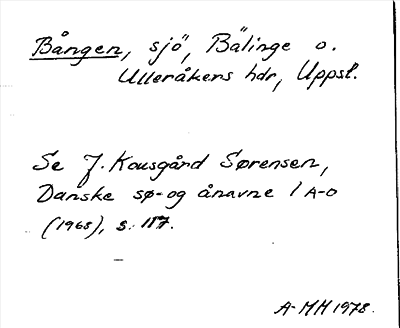 Bången, sjö, Bälinge o.
Ulleråkers hdr, Uppsl.
Se J. Kousgård Sørensen,
Danske sø- og ånavne 1 A-D
(1968), s. 117.
A-MH 1978.